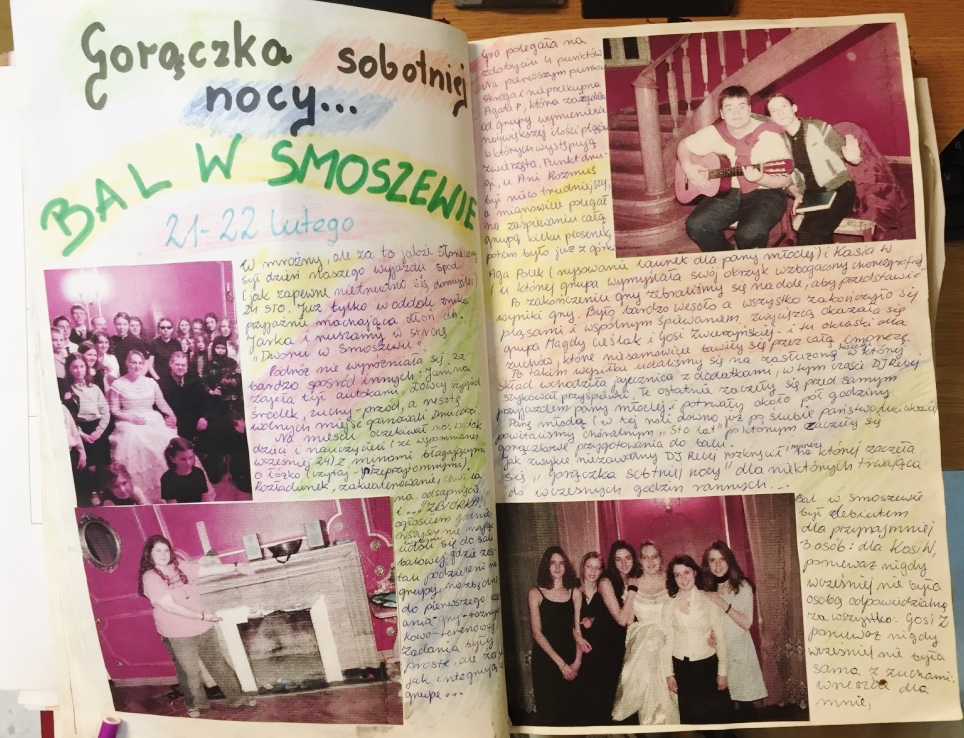 Gorączka sobotniej
nocy...
BAL W SMOSZEWIE
21-22 lutego
W mroźny, ale za to jakże słoneczny
był dzień naszego wyjazdu spod
(jak zapewne nietrudno się domyślić)
24 STO. Już tylko w oddali znika
przyjaźnie machająca dłoń dh.
Jarka i ruszamy w stronę
"Dworu w Smoszewie".
Podróż nie wyróżniała się za
bardzo spośród innych: Jamina
zajęła tył autokaru, Łowcy Przygód
środek, zuchy - przód, a resztą
wolnych miejsc panowali
Na miejscu oczekiwał nas
dzieci i nauczycieli (ze wspomnianej
wcześniej 24) z minami błagającymi
o łóżko (czytaj nieprzytomnymi).
Rozładunek, zakwaterowanie, chwila
na odsapnięcie
i... ZBIÓRKA!
wszyscy nie mając
udali się do sali
balowej, gdzie zos-
tali podzieleni na
grupy, niezbędne
do pierwszego
ania - gry -
kowo - terenowej.
Zadania były
proste, ale za to
jak integrują
grupę...
Gra polegała na
zdobyciu 4 punktów
Na pierwszym punkcie
sroga i nieprzekupna
Agata P., która zażądała
od grupy wymienienia
największej ilości pląsów
w których występują
zwierzęta. Punkt dru-
gi, u Ani Rozmus
był nieco trudniejszy,
a mianowicie polegał
na zaśpiewaniu całą
grupą kilku piosenek,
potem było już z górki
Aga Polk (rysowanie laurek dla pary młodej) i Kasia W
(u której grupa wymyślała swój okrzyk wzbogacony choreografią)
Po zakończeniu gry zebraliśmy się na dole, aby przedstawić
wyniki gry. Było bardzo wesoło a wszystko zakończyło się
pląsami i wspólnym śpiewaniem, zwycięzcą okazała się
grupa Magdy Cieślak i Gosi Zwierzyńskiej - i tu oklaski dla
zuchów, które niesamowicie bawiły się przez całą imprezę.
Po takim wysiłku udaliśmy się na zasłużoną kolację w której
skład wchodziła jajecznica z dodatkami, w tym czasie DJ Rebey
szykował przyśpiewki. Te ostatnie zaczęły się przed samym
przyjazdem pary młodej i potrwały około pół godziny.
Parę młodą (w tej roli dawno już po ślubie państwo
powitaliśmy chóralnym "sto lat" po którym zaczęły się
gorączkowe przygotowania do balu.
Jak zwykle niezawodny DJ Rebey rozkręcił imprezę na której zaczęła
się "gorączka sobotniej nocy" dla niektórych trwająca
do wczesnych godzin rannych...
Bal w Smoszewie
był debiutem
dla przynajmniej
3 osób: dla Kasi W,
ponieważ nigdy
wcześniej nie była
osobą odpowiedzialną
za wszystko: Gosi Z
ponieważ nigdy
wcześniej nie była
sama z zuchami:
wreszcie dla
mnie,